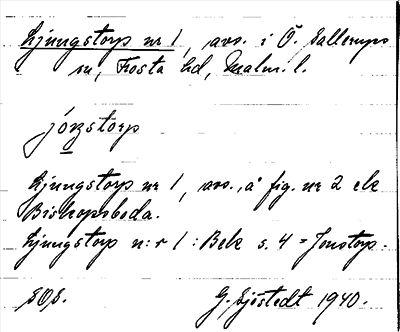 Ljungstorp nr 1, avs. i Ö. Sallerups
sn, Frosta hd, Malm. l.
jóȥstorp
Ljungstorp nr 1, avs., å fig. nr 2 ek
Bishopsboda.
Ljungstorp n:r 1 : Bek s. 4 = Jonstorp.
SOS. G. Sjöstedt 1940.